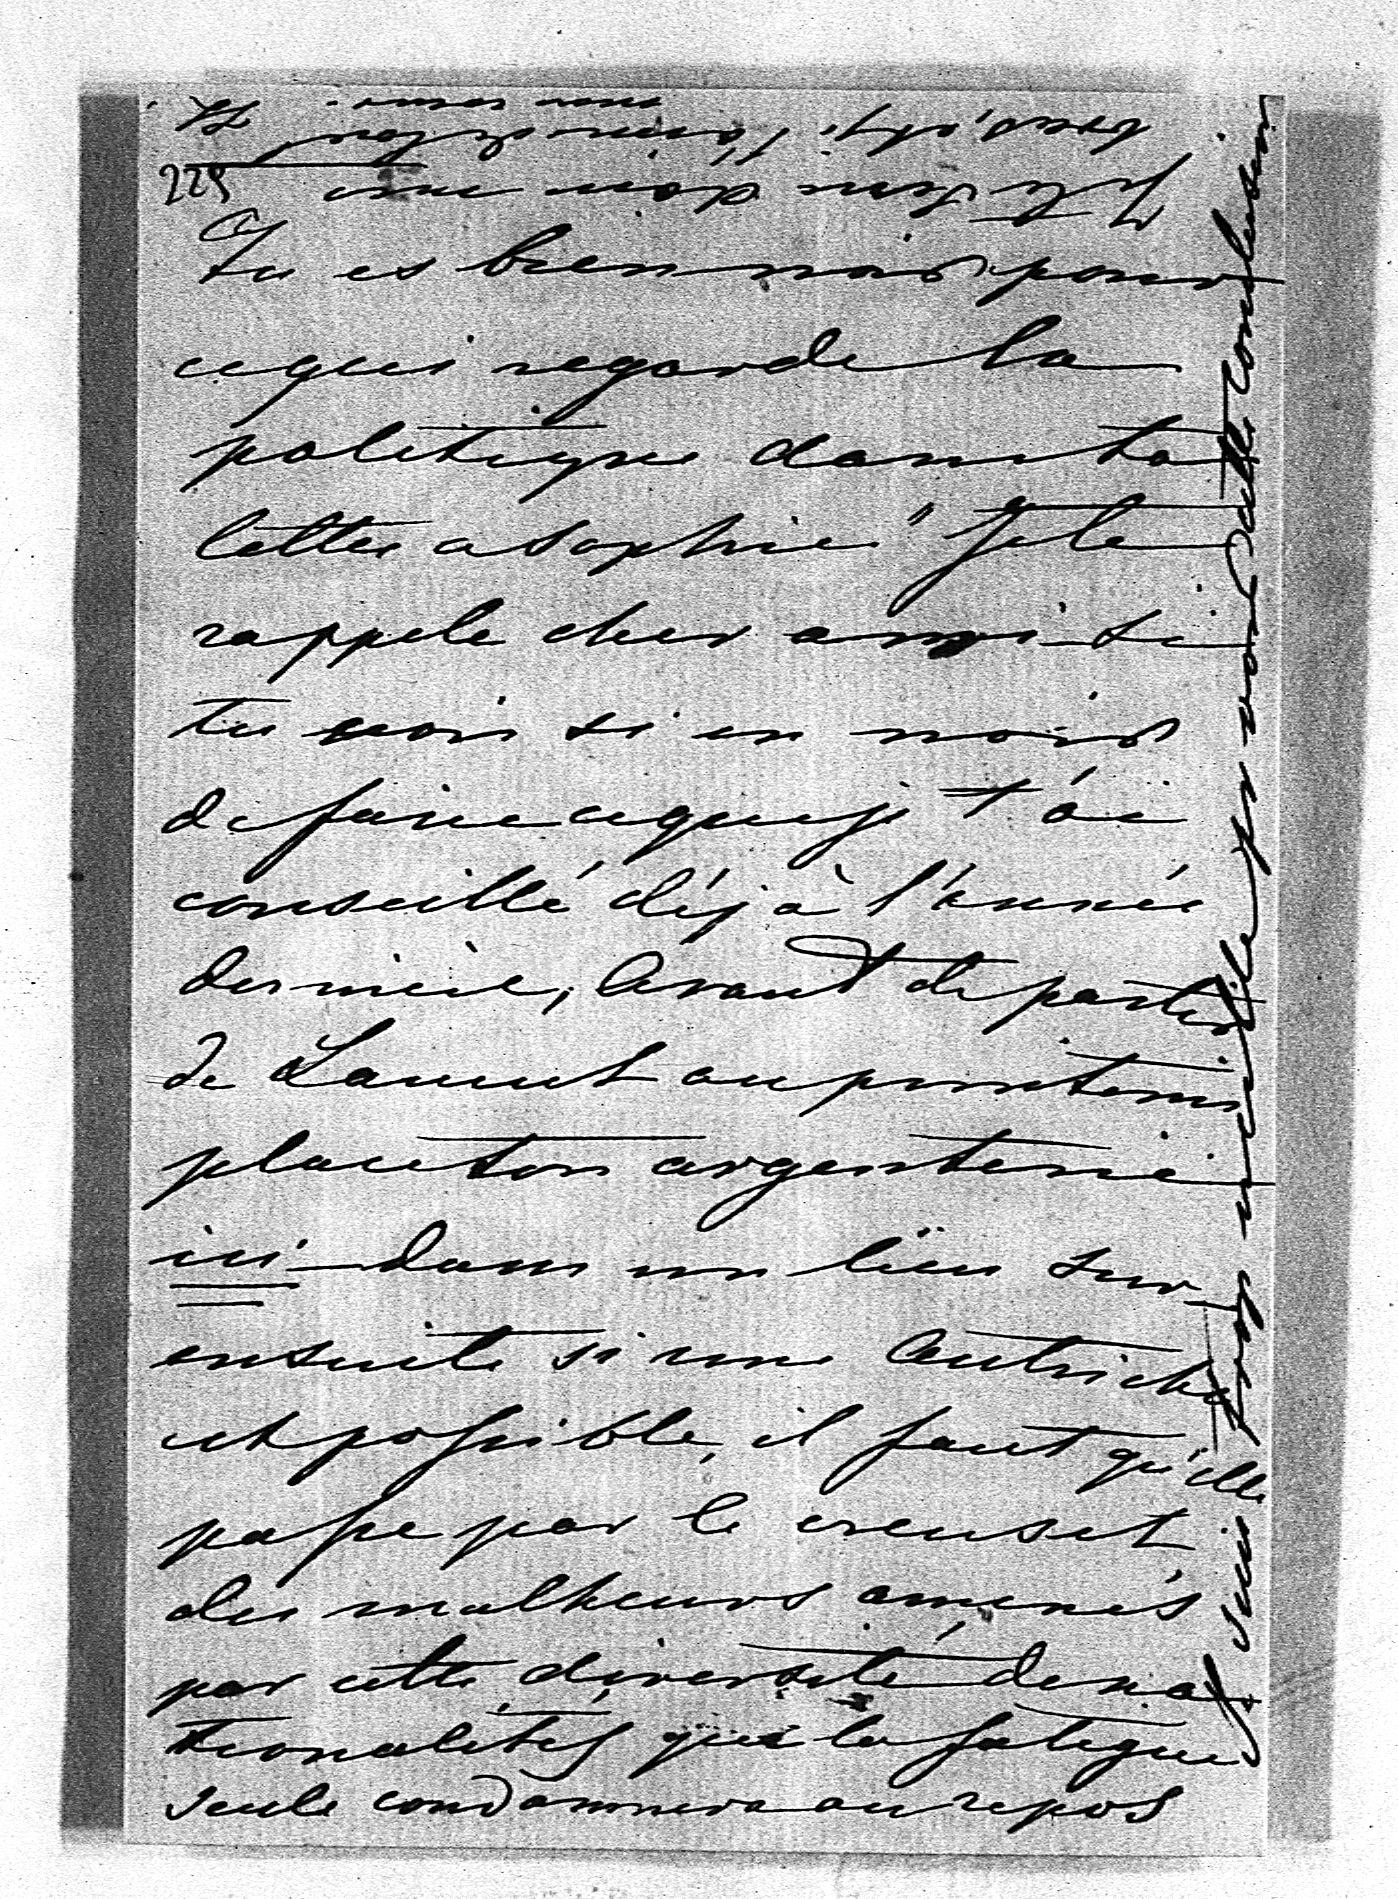 229
Tu es bien noir pour
ce qui regarde la
politique dans ta
lettre a Sophie! Je te
rappele cher ami si
tu vois si en noir
de faire ce que je t'ai
conseillé déjà l'année
dernière, avant de partir
de Lancut au printems
place ton argenterie
ici dans un lieu sur
ensuite si une Autriche
est possible, il faut qu'elle
passe par le creuset
des malheurs amenés
par cette diversité de na
tionalités que la fatigue
seule condamnera au repos
Je suis trop vieille pr voir cette conclusion
Je te serre dans mes
bras,